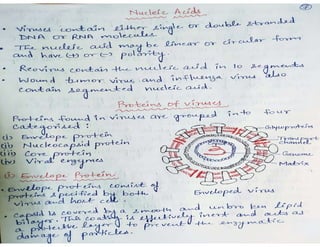 Nucleic Acids
• Viruses contain either single or double stranded
DNA or RNA molecules.
• The nucleic acid may be linear or circular form
and have (+) or (-) polarity.
• Reovirus contain the nucleic acid in 10 segments
• Wound tumor virus and influenza virus also
contain segmented nucleic acid.
Proteins of viruses
Proteins found in viruses are grouped into four
categorised :
(i) Envelope protein
(ii) Nucleocapsid protein
(iii) Core protein
(iv) Viral enzymes
Glycoprotein
Transport
channel
Genome
Matrix
Enveloped virus
(i) Envelope Protein
• Envelope proteins consist of
proteins specified by both
virus and host cell.
• Capsid is covered by a smooth and unbroken lipid
bilayer. This coating is effectively inert and acts as
a protective layer to prevent the enzymatic
damage of particles.